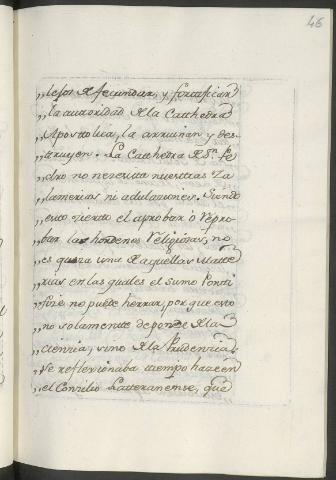 46
„lejos de fecundar, y fortificar
„la autoridad de la Cathedra
„Apostolica, la arruinan y des-
„truyen. La Cathedra de Sn. Pe
„dro no necesita nuestras Za
„lamerias ni adulaciones. Siendo
„esto cierto el aprobar ò repro
„bar las hordenes Religiosas, no
„es quiza una de aquellas Mate
„rias en las quales el sumo Ponti
„fice no puede herrar; por que esto
„no solamente depende de la
„ciencia, sino de la Prudencia.
„Se reflexionaba tiempo hace en
„el Conzilio Lateranense, que